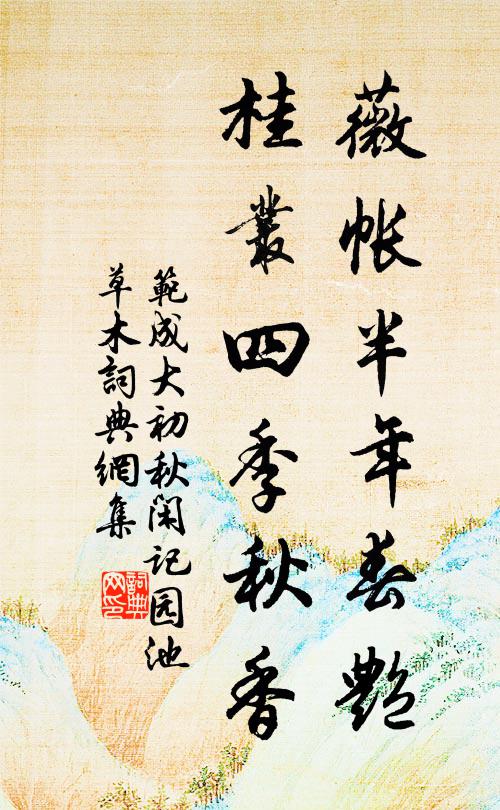 薇帐半年春艷
桂叢四季秋香
範成大初秋闲記园池
草木詞典網集
詞典
网印